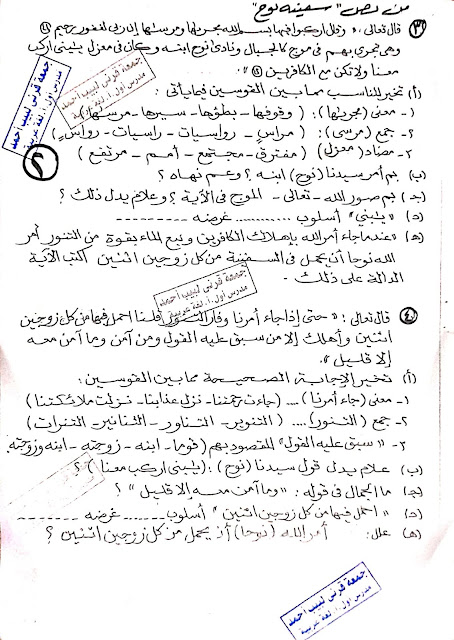 من نص " سفينة نوح "
(٣) قال تعالى : « وقال اركبوا فيها بسم الله مجريها ومرساها إن ربي لغفور رحيم (٤١)
وهى تجرى بهم فى موج كالجبال ونادى نوح ابنه وكان فى معزل يابنى اركب
معنا ولا تكن مع الكافرين (٤٢) »
(أ) تخير المناسب مما بين القوسين فيما يأتى :
١- معنى (مجريها) : ( وقوفها - بطؤها - سيرها - مرساها )
٢- جمع (مرسى) : ( مراسٍ - رواسيات - راسيات - رواسٍ )
٣- مضاد (معزل) ( مفترق - مجتمع - أمم - مرتفع )
(ب) بم أمر سيدنا (نوح) ابنه ؟ وعم نهاه ؟
(جـ) بم صور الله - تعالى - الموج فى الآية ؟ وعلام يدل ذلك ؟
(د) « يابنى » أسلوب ........... غرضه ----------
(هـ) « عندما جاء أمر الله بإهلاك الكافرين ونبع الماء بقوة من التنور أمر
الله نوحا أن يحمل فى السفينة من كل زوجين اثنين اكتب الآية
الدالة على ذلك .
(٤) قال تعالى : « حتى إذا جاء أمرنا وفار التنور قلنا احمل فيها من كل زوجين
اثنين وأهلك إلا من سبق عليه القول ومن آمن وما آمن معه
إلا قليل ».
(أ) تخير الإجابة الصحيحة مما بين القوسين :
١- معنى (جاء أمرنا) .... (جاءت رحمتنا - نزل عذابنا - نزلت ملائكتنا)
٢- جمع (التنور) .... ( التنوير - التناور - التنانير - التنورات )
٣- " سبق عليه القول " المقصود بهم ( قوما - ابنه - زوجته - ابنه وزوجته )
(ب) علام يدل قول سيدنا (نوح) : (يابنى اركب معنا) ؟
(جـ) ما الجمال فى قوله : « وما آمن معه إلا قليل » ؟
(د) « احمل فيها من كل زوجين اثنين » أسلوب ------ غرضه --------
(هـ) علل : أمر الله (نوحا) أن يحمل من كل زوجين اثنين ؟
جمعة قرنى لبيب احمد
مدرس أول أ. لغة عربية
٢
جمعة قرنى لبيب احمد
مدرس أول أ. لغة عربية
جمعة قرنى لبيب احمد
مدرس أول أ. لغة عربية